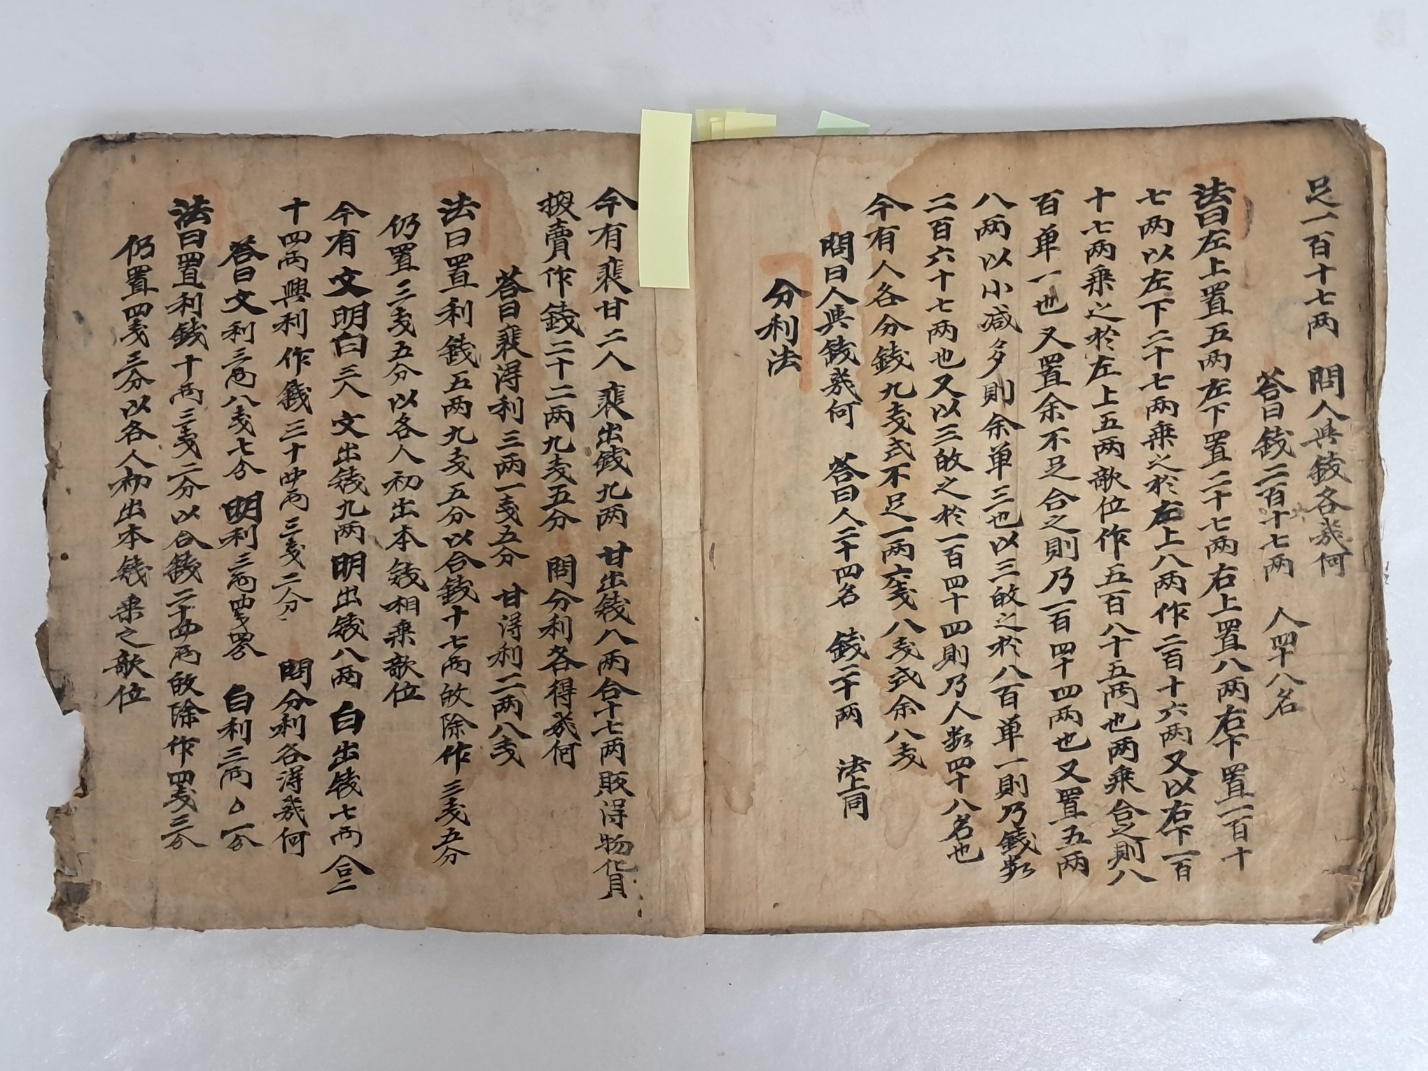 足一百十七两　問人與錢各幾何
答曰錢二百十七两　人四十八名
法曰左上置五两左下置二十七两右上置八两右下置一百十
七两以左下二十七两乘之於右上八两作二百十六两又以右下一百
十七两乘之於左上五两歌位作五百八十五两也两乘合之則八
百单一也又置余不足合之則乃一百四十四两也又置五两
八两以小减多則余单三也以三的之於八百单一則乃錢數
二百六十七两也又以三的之於一百四十四則乃人數四十八名也
今有人各分錢九戋式不足一两六戋八戋式余八戋
問曰人與錢幾何　答曰人二十四名　錢二十两　法上同
分利法
今有裴甘二人　裴出錢九两　甘出錢八两合十七两販得物貨
搬賣作錢二十二两九戋五分　問分利各得幾何
答曰裴得利三两一戋五分　甘得利二两八戋
法曰置利錢五两九戋五分以合錢十七两的除作三戋五分
仍置三戋五分以各人初出本錢相乘歌位
今有文明白三人　文出錢九两　明出錢八两　白出錢七两　合二
十四两興利作錢三十四两三戋二分　問分利各得幾何
答曰文利三两八戋七分　明利三两四戋四分　白利三两〇一分
法曰置利錢十两三戋二分以合錢二十四两的除作四戋三分
仍置四戋三分以各人初出本錢乘之歌位